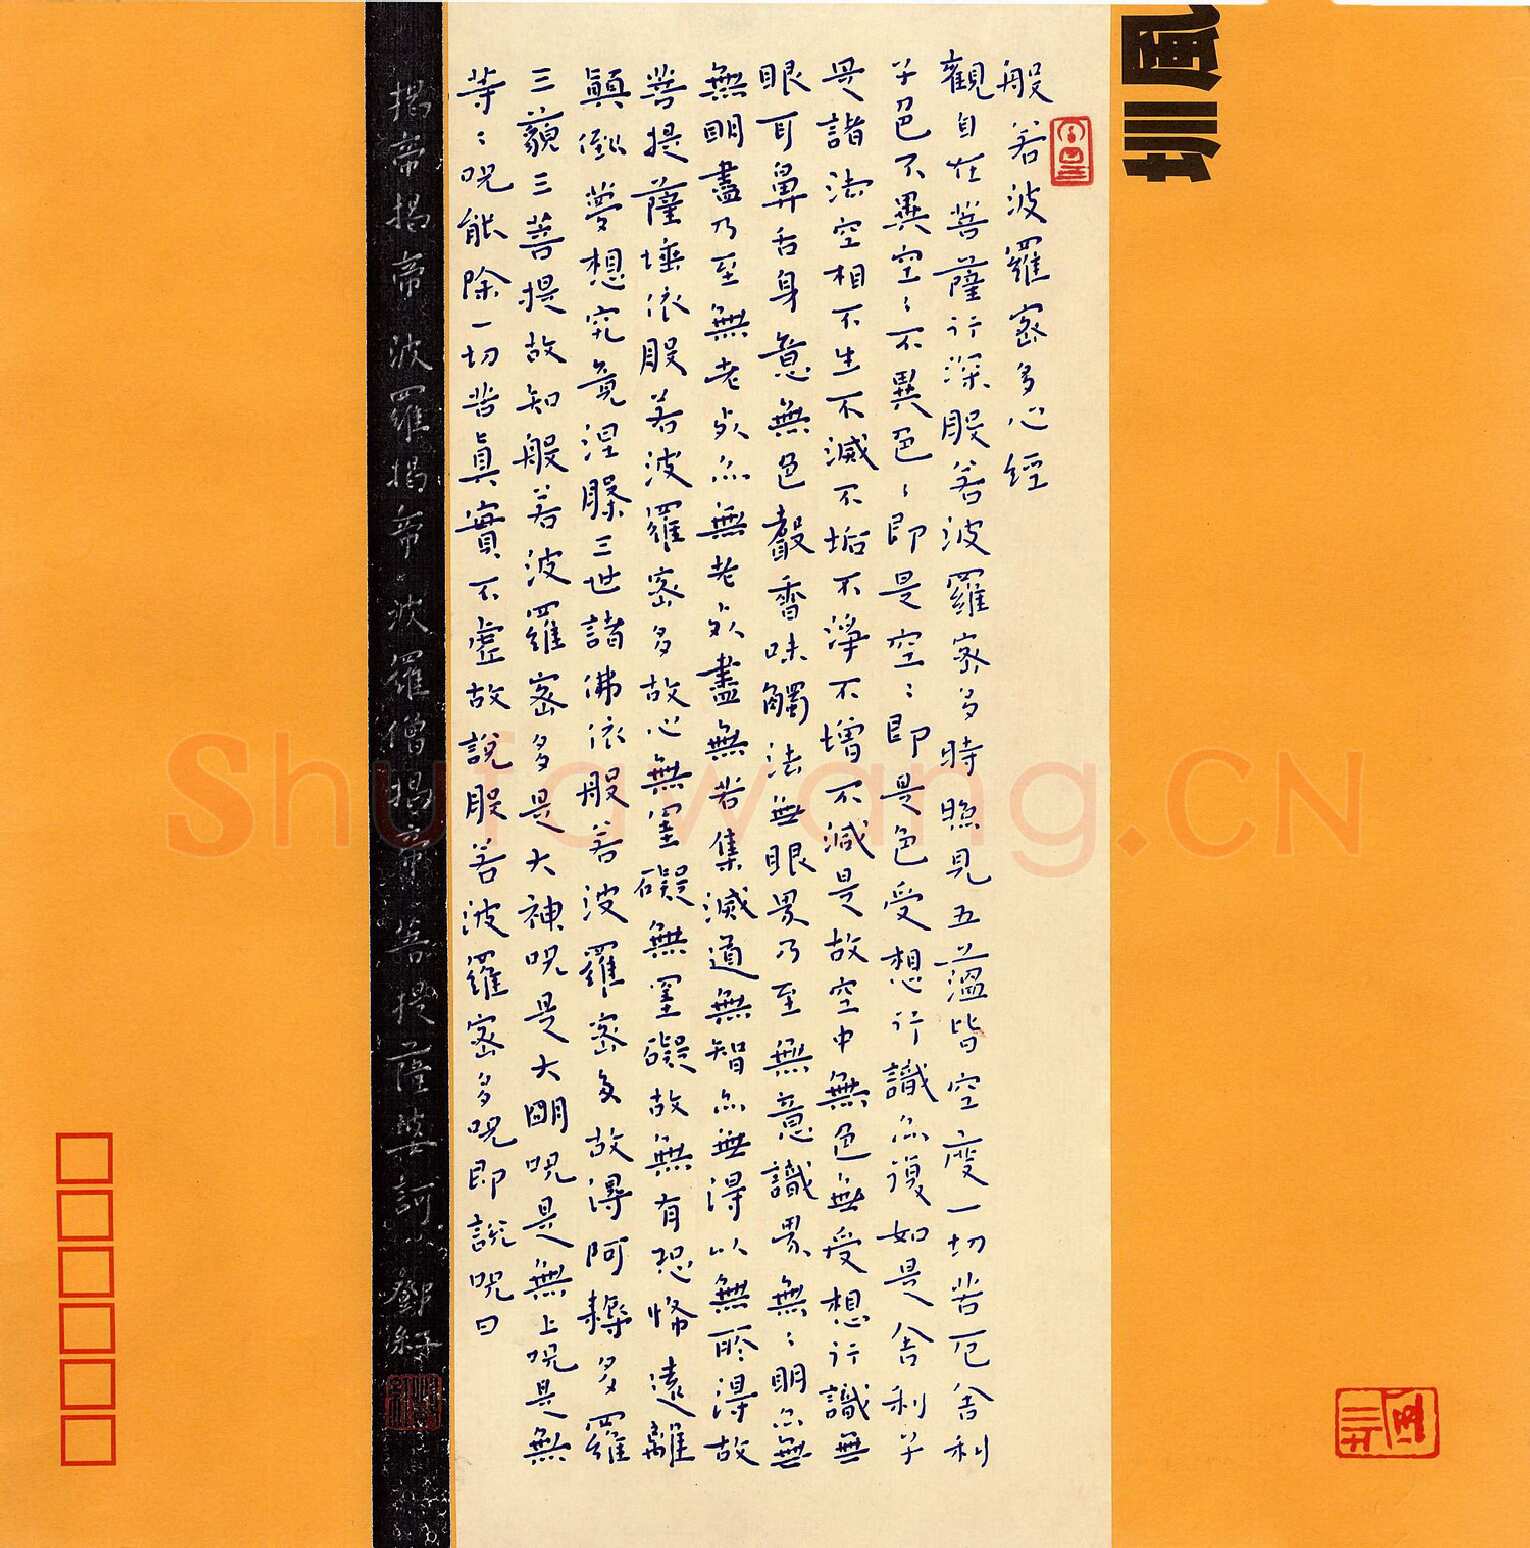 般若波羅密多心經
觀自在菩薩行深般若波羅密多時照見五蘊皆空度一切苦厄舍利
子色不異空〻不異色〻即是空〻即是色受想行識亦復如是舍利子
是諸法空相不生不滅不垢不淨不增不減是故空中無色無受想行識無
眼耳鼻舌身意無色聲香味觸法無眼界乃至無意識界無〻明亦無
無明盡乃至無老死亦無老死盡無苦集滅道無智亦無得以無所得故
菩提薩埵依般若波羅密多故心無罣礙無罣礙故無有恐怖遠離
顛倒夢想究竟涅槃三世諸佛依般若波羅密多故得阿耨多羅
三藐三菩提故知般若波羅密多是大神咒是大明咒是無上咒是無
等〻咒能除一切苦真實不虛故說般若波羅密多咒即說咒曰
揭帝揭帝波羅揭帝波羅僧揭帝菩提薩婆訶 鄧
Shufawang.CN